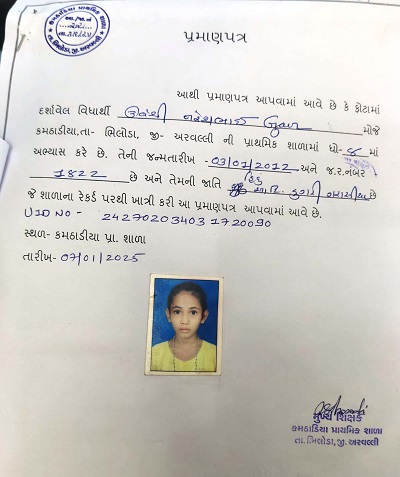 કમઠાડિયા પ્રાથમિક શાળા
તા. ભિલોડા, જી. અરવલ્લી
પ્રમાણપત્ર
આથી પ્રમાણપત્ર આપવામાં આવે છે કે ફોટામાં
દર્શાવેલ વિદ્યાર્થી મોજે
કમઠાડીયા,તા- ભિલોડા, જી- અરવલ્લી ની પ્રાથમિક શાળામાં ધો- ૮ માં
અભ્યાસ કરે છે. તેની જન્મતારીખ -03/01/2012 અને જ.ર.નંબર
1822 છે અને તેમની જાતિ હિંદુ છે
જે શાળાના રેકર્ડ પરથી ખાત્રી કરી આ પ્રમાણપત્ર આપવામાં આવે છે.
UID NO - 242702034031720090
સ્થળ- કમઠાડીયા પ્રા. શાળા
તારીખ- 07/01/2025
મુખ્ય શિક્ષક
કમઠાડિયા પ્રાથમિક શાળા
તા. ભિલોડા,જી. અરવલ્લી